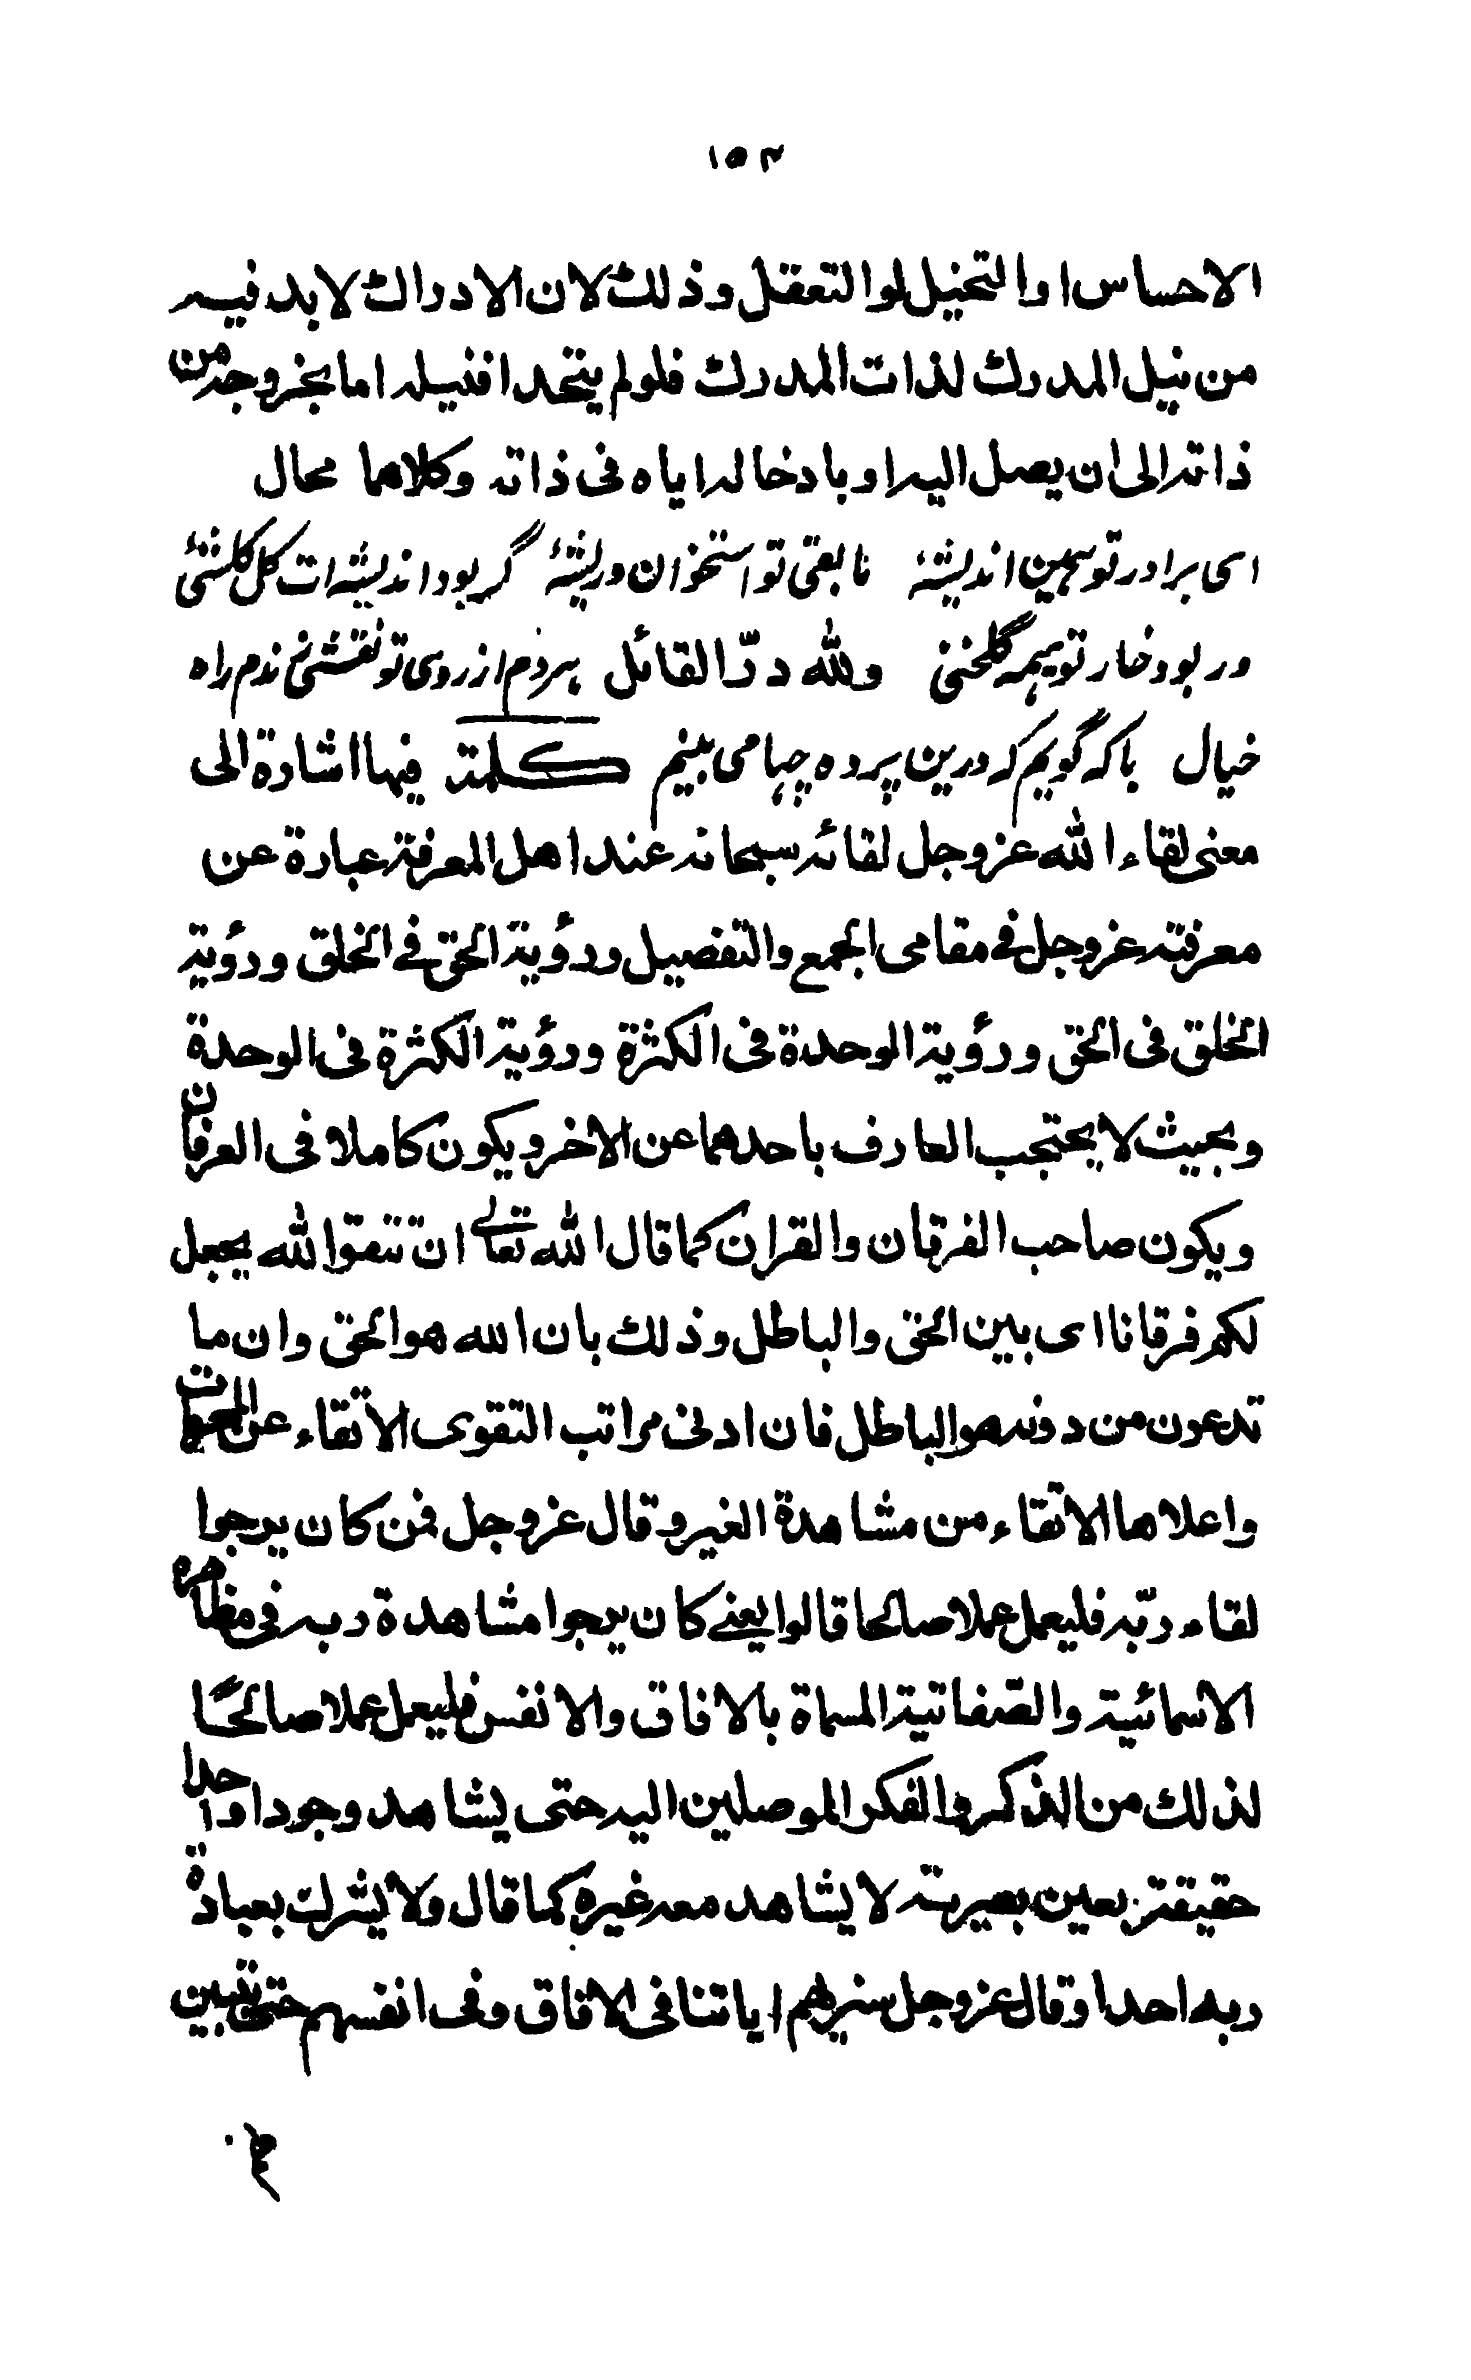 ١٥٣
الاحساس او التخيل او التعقل وذلك لان الادراك لا بد فيه
من نيل المدرك لذات المدرك فلو لم يتحد افنيله اما بخروجه من
ذاته الى ان يصل اليه او بادخاله اياه فى ذاته وكلاهما محال
اى برادر تو همين انديشۀ ما بقى تو استخوان وريشۀ گر بود انديشه ات گل گلشنى
ور بود خار تو هيمه گلخنى ولله درّ القائل هردم از روى تو نقشى زندم راه
خيال با كه گويم كه درين پرده چها مى بينم كلمة فيها اشارة الى
معنى لقاء الله عزوجل لقائه سبحانه عند اهل المعرفة عبارة عن
معرفته عزوجل فى مقامى الجمع والتفصيل ورؤية الحق فى الخلق ورؤية
الخلق فى الحق ورؤية الوحدة فى الكثرة ورؤية الكثرة فى الوحدة
وبحيث لا يحتجب العارف باحدهما عن الاخر ويكون كاملا فى العرفان
ويكون صاحب الفرقان والقران كما قال الله تعالى ان تتقوا الله يجعل
لكم فرقانا اى بين الحق والباطل وذلك بان الله هو الحق وان ما
تدعون من دونه هو الباطل فان ادنى مراتب التقوى الاتقاء عن المحرمات
واعلاها الاتقاء من مشاهدة الغير وقال عزوجل فمن كان يرجوا
لقاء ربّه فليعمل عملا صالحا قالوا يعنى كان يرجوا مشاهدة ربه فى مظاهره
الاسمائية والصّفاتية المسماة بالافاق والانفس فليعمل عملا صالحًا
لذلك من الذكر والفكر الموصلين اليه حتى يشاهد وجودا واحدا
حقيقة بعين بصيرته لا يشاهد معه غيره كما قال ولا يشرك بعبادة
ربه احدا وقال عزوجل سنريهم اياتنا فى الافاق وفى انفسهم حتى يتبين